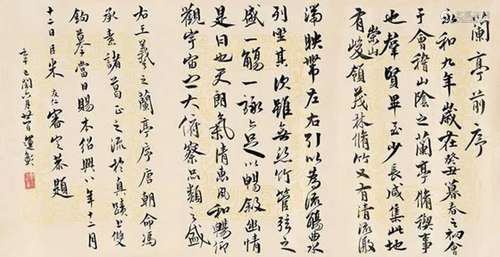 蘭亭前序
永和九年歲在癸丑暮春之初會
于會稽山陰之蘭亭脩禊事
也群賢畢至少長咸集此地
有崇山峻領茂林脩竹又有清流激
湍暎帶左右引以為流觴曲水
列坐其次雖無絲竹管弦之
盛一觴一詠亦足以暢敘幽情
是日也天朗氣清惠風和暢仰
觀宇宙之大俯察品類之盛
右王羲之蘭亭序唐朝命馮
承素諸葛正之流於真蹟上雙
鉤摹當日賜本紹興八年十二月
十二日臣米友仁審定恭題
閏六月